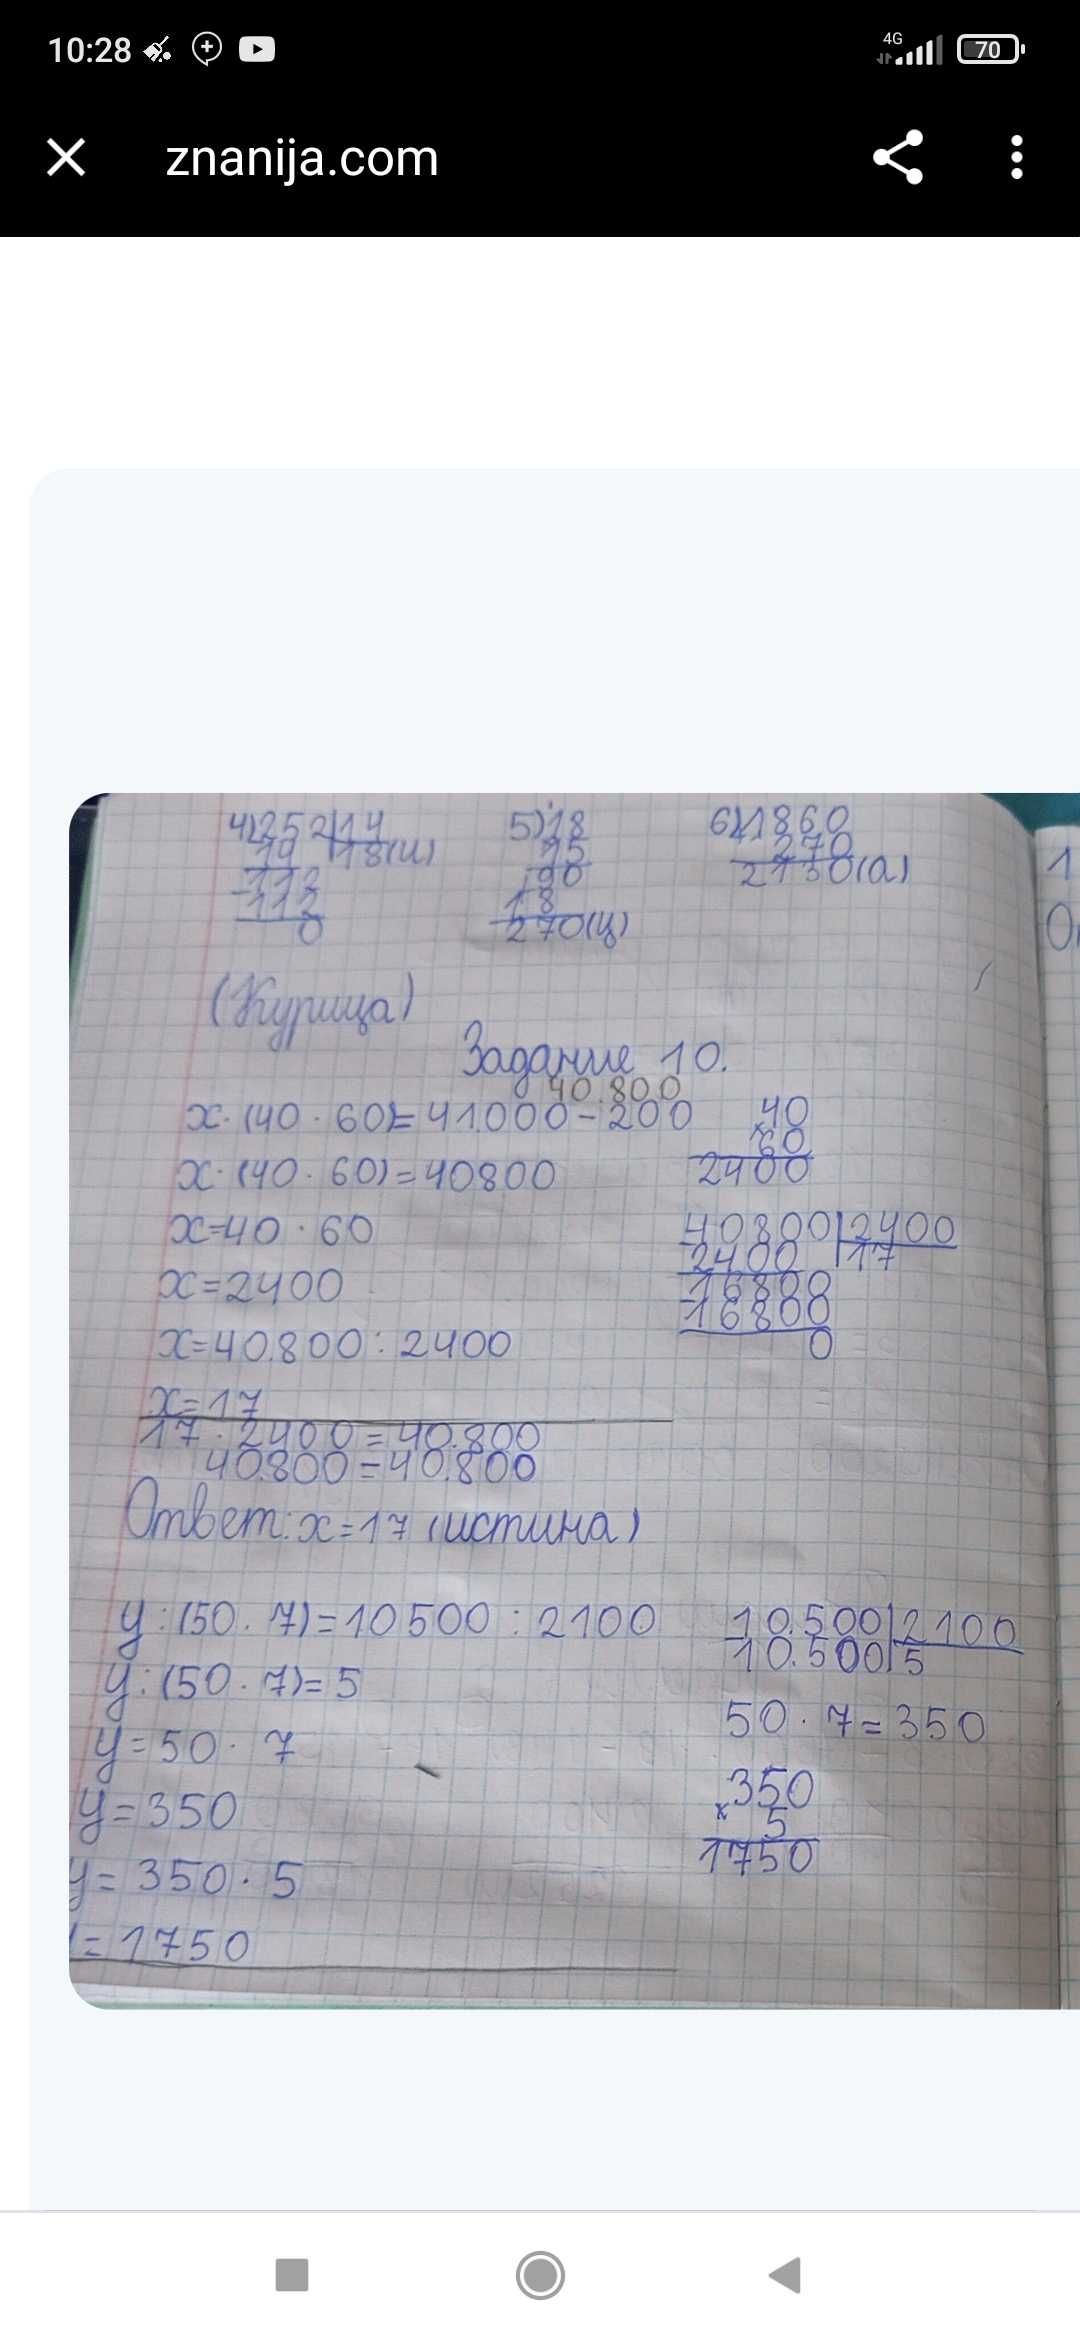 10:28
4G
70
znanija.com
4) 252|14
14 |18(и)
-112
-112
0
5) 18
15
90
18
270(ц)
6) 1860
270
2130(а)
1
(Курица)
Задание 10.
40.800
x·(40·60)=41.000-200
x·(40·60)=40800
x=40·60
x=2400
x=40.800:2400
x=17
17·2400=40.800
40.800=40.800
Ответ: x=17 (истина)
40
×60
2400
40800|2400
2400 |17
-16800
-16800
0
y:(50·7)=10500:2100
y:(50·7)=5
y=50·7
y=350
y=350·5
=1750
10.500|2100
10.500|5
50·7=350
350
×5
1750